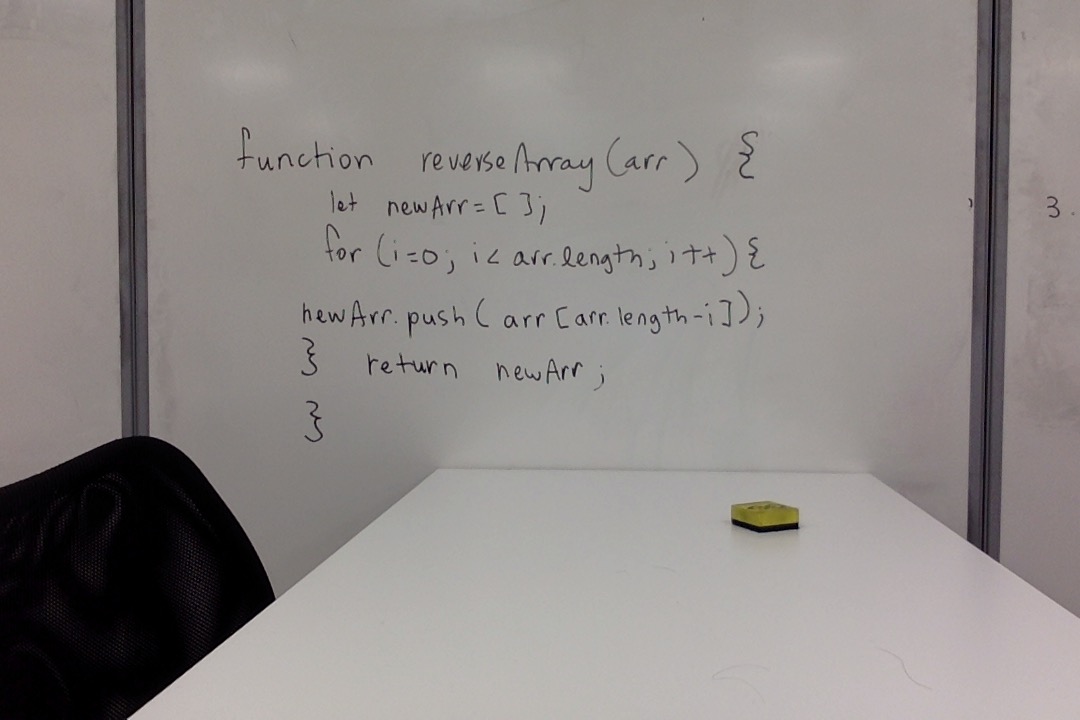 function reverseArray(arr) {
let newArr=[];
for (i=0; i< arr.length; i++){
newArr.push( arr[arr.length-i]);
} return newArr;
}
3.